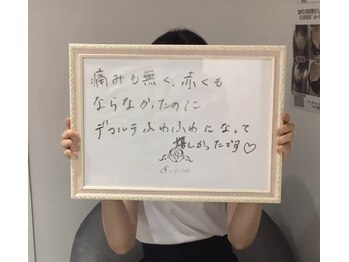 痛みも無く、赤くも
ならなかったのに
デコルテふわふわになって
嬉しかったです♡